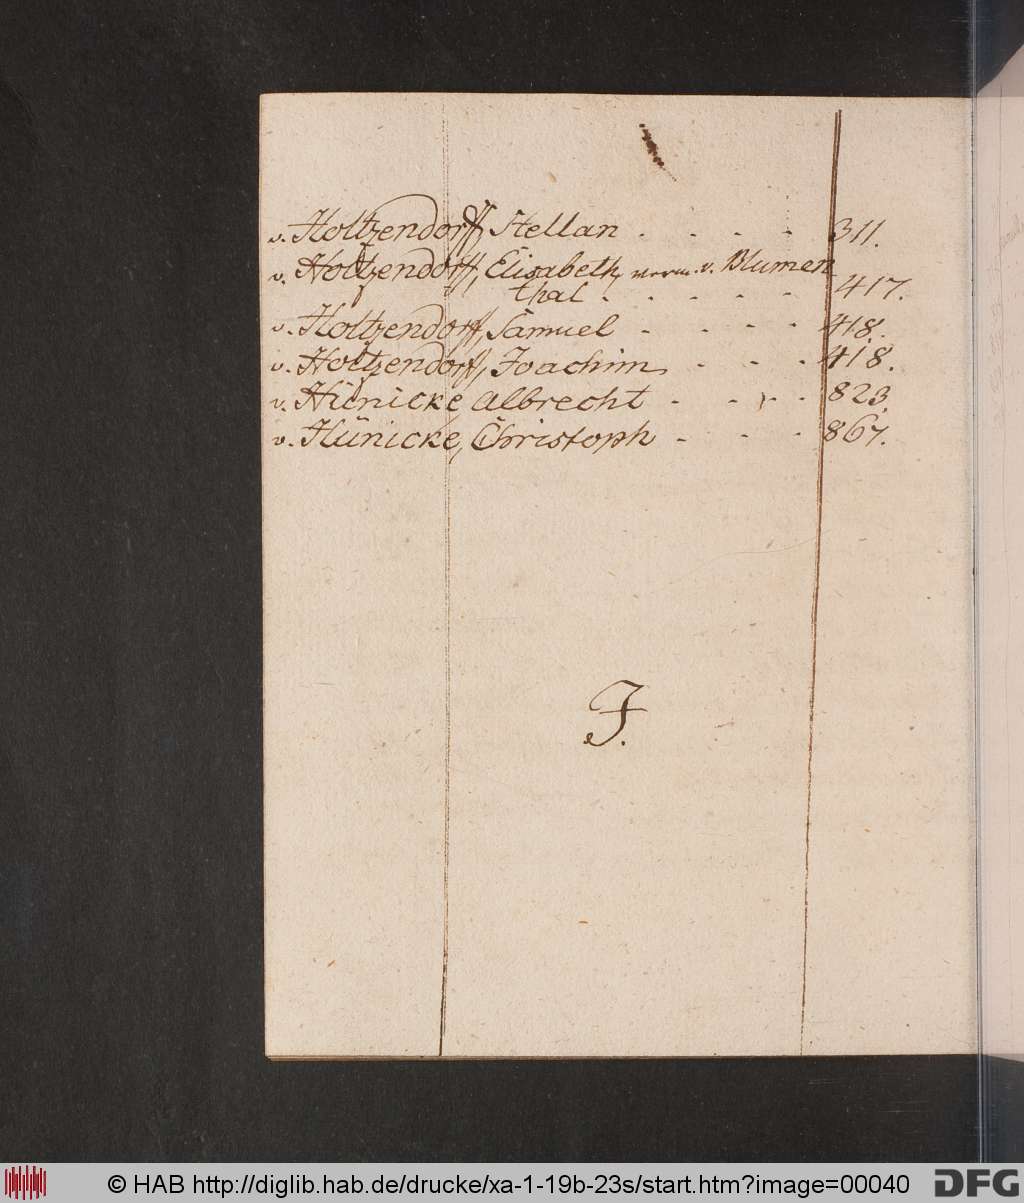 v. Holtzendorff, Stellan . . . . . 311.
v. Holtzendorff, Elisabeth, verm. v. Blumen
thal . . . . . . 417.
v. Holtzendorff, Samuel . . . . . 418.
v. Holtzendorff, Joachim . . . 418.
v. Hünicke, Albrecht . . . . 823.
v. Hünicke, Christoph . . . . 867.
J.
© HAB http://diglib.hab.de/drucke/xa-1-19b-23s/start.htm?image=00040
DFG